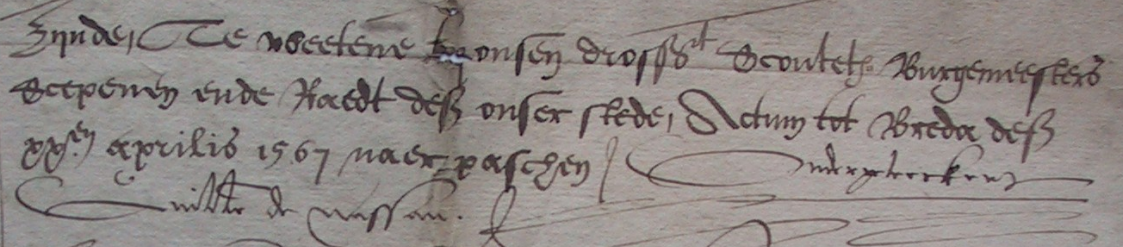 zynde, Te weetene onsen drosst Scoutet Burgemeesters
Scepenen ende Raedt deser onser stede, Actum tot Breda des
xxen aprilis 1567 naer paschen / Ondergeteekent
Guille de nassau.